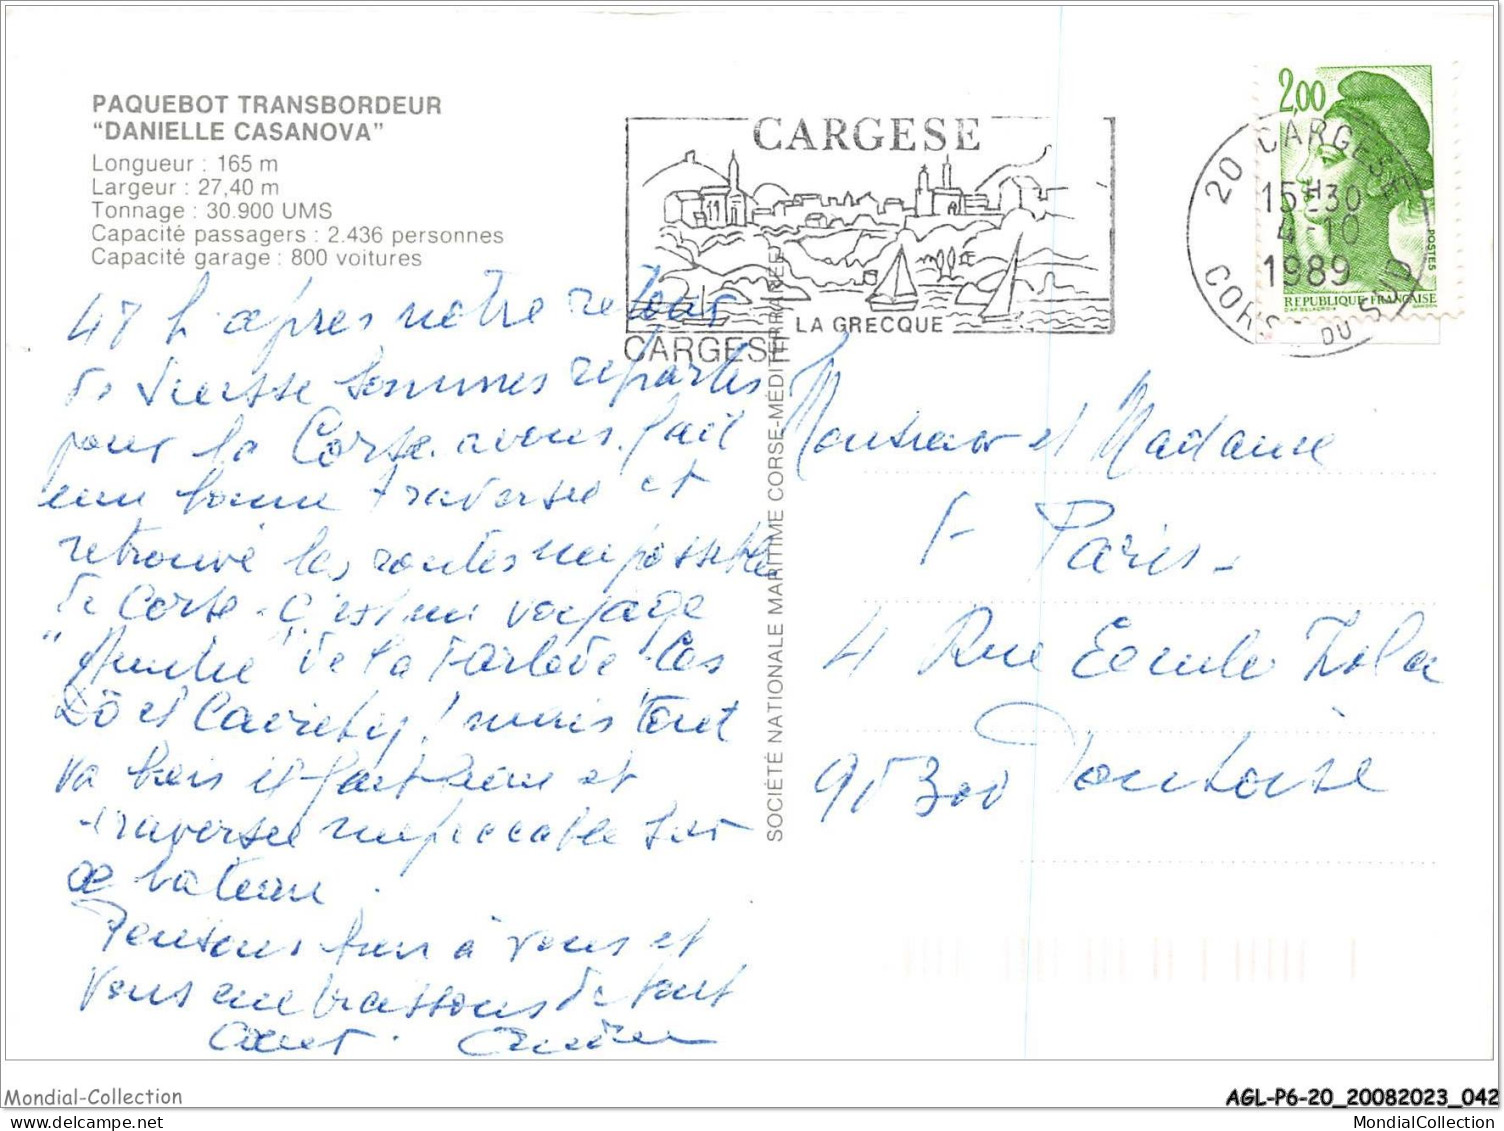 PAQUEBOT TRANSBORDEUR
"DANIELLE CASANOVA"
Longueur : 165 m
Largeur : 27,40 m
Tonnage : 30.900 UMS
Capacité passagers : 2.436 personnes
Capacité garage : 800 voitures
CARGESE
LA GRECQUE
CARGESE
20 CARGESE
15H30
4-10
1989
CORSE DU SUD
2,00
POSTES
REPUBLIQUE FRANÇAISE
48 h après notre retour
de Suisse sommes repartis
pour la Corse. avons fait
une bonne traversée et
retrouvé les routes impossible
de Corse. C'est un voyage
de la
et mais tout
va bien il fait et
traversée impeccable sur
ce bateau.
Pensons bien à vous et
Vous embrassons de tout
Cœur.
SOCIÉTÉ NATIONALE MARITIME CORSE-MÉDITERRANÉE
Monsieur et Madame
Paris
4 Rue Emile Zola
95300 Pontoise
Mondial-Collection
AGL-P6-20_20082023_042
delcampe.net
MondialCollection